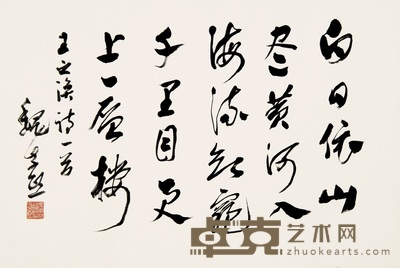 白日依山
尽黄河入
海流欲窮
千里目更
上一层楼
王之涣诗一首
魏
卓克艺术网
zhuokearts.com